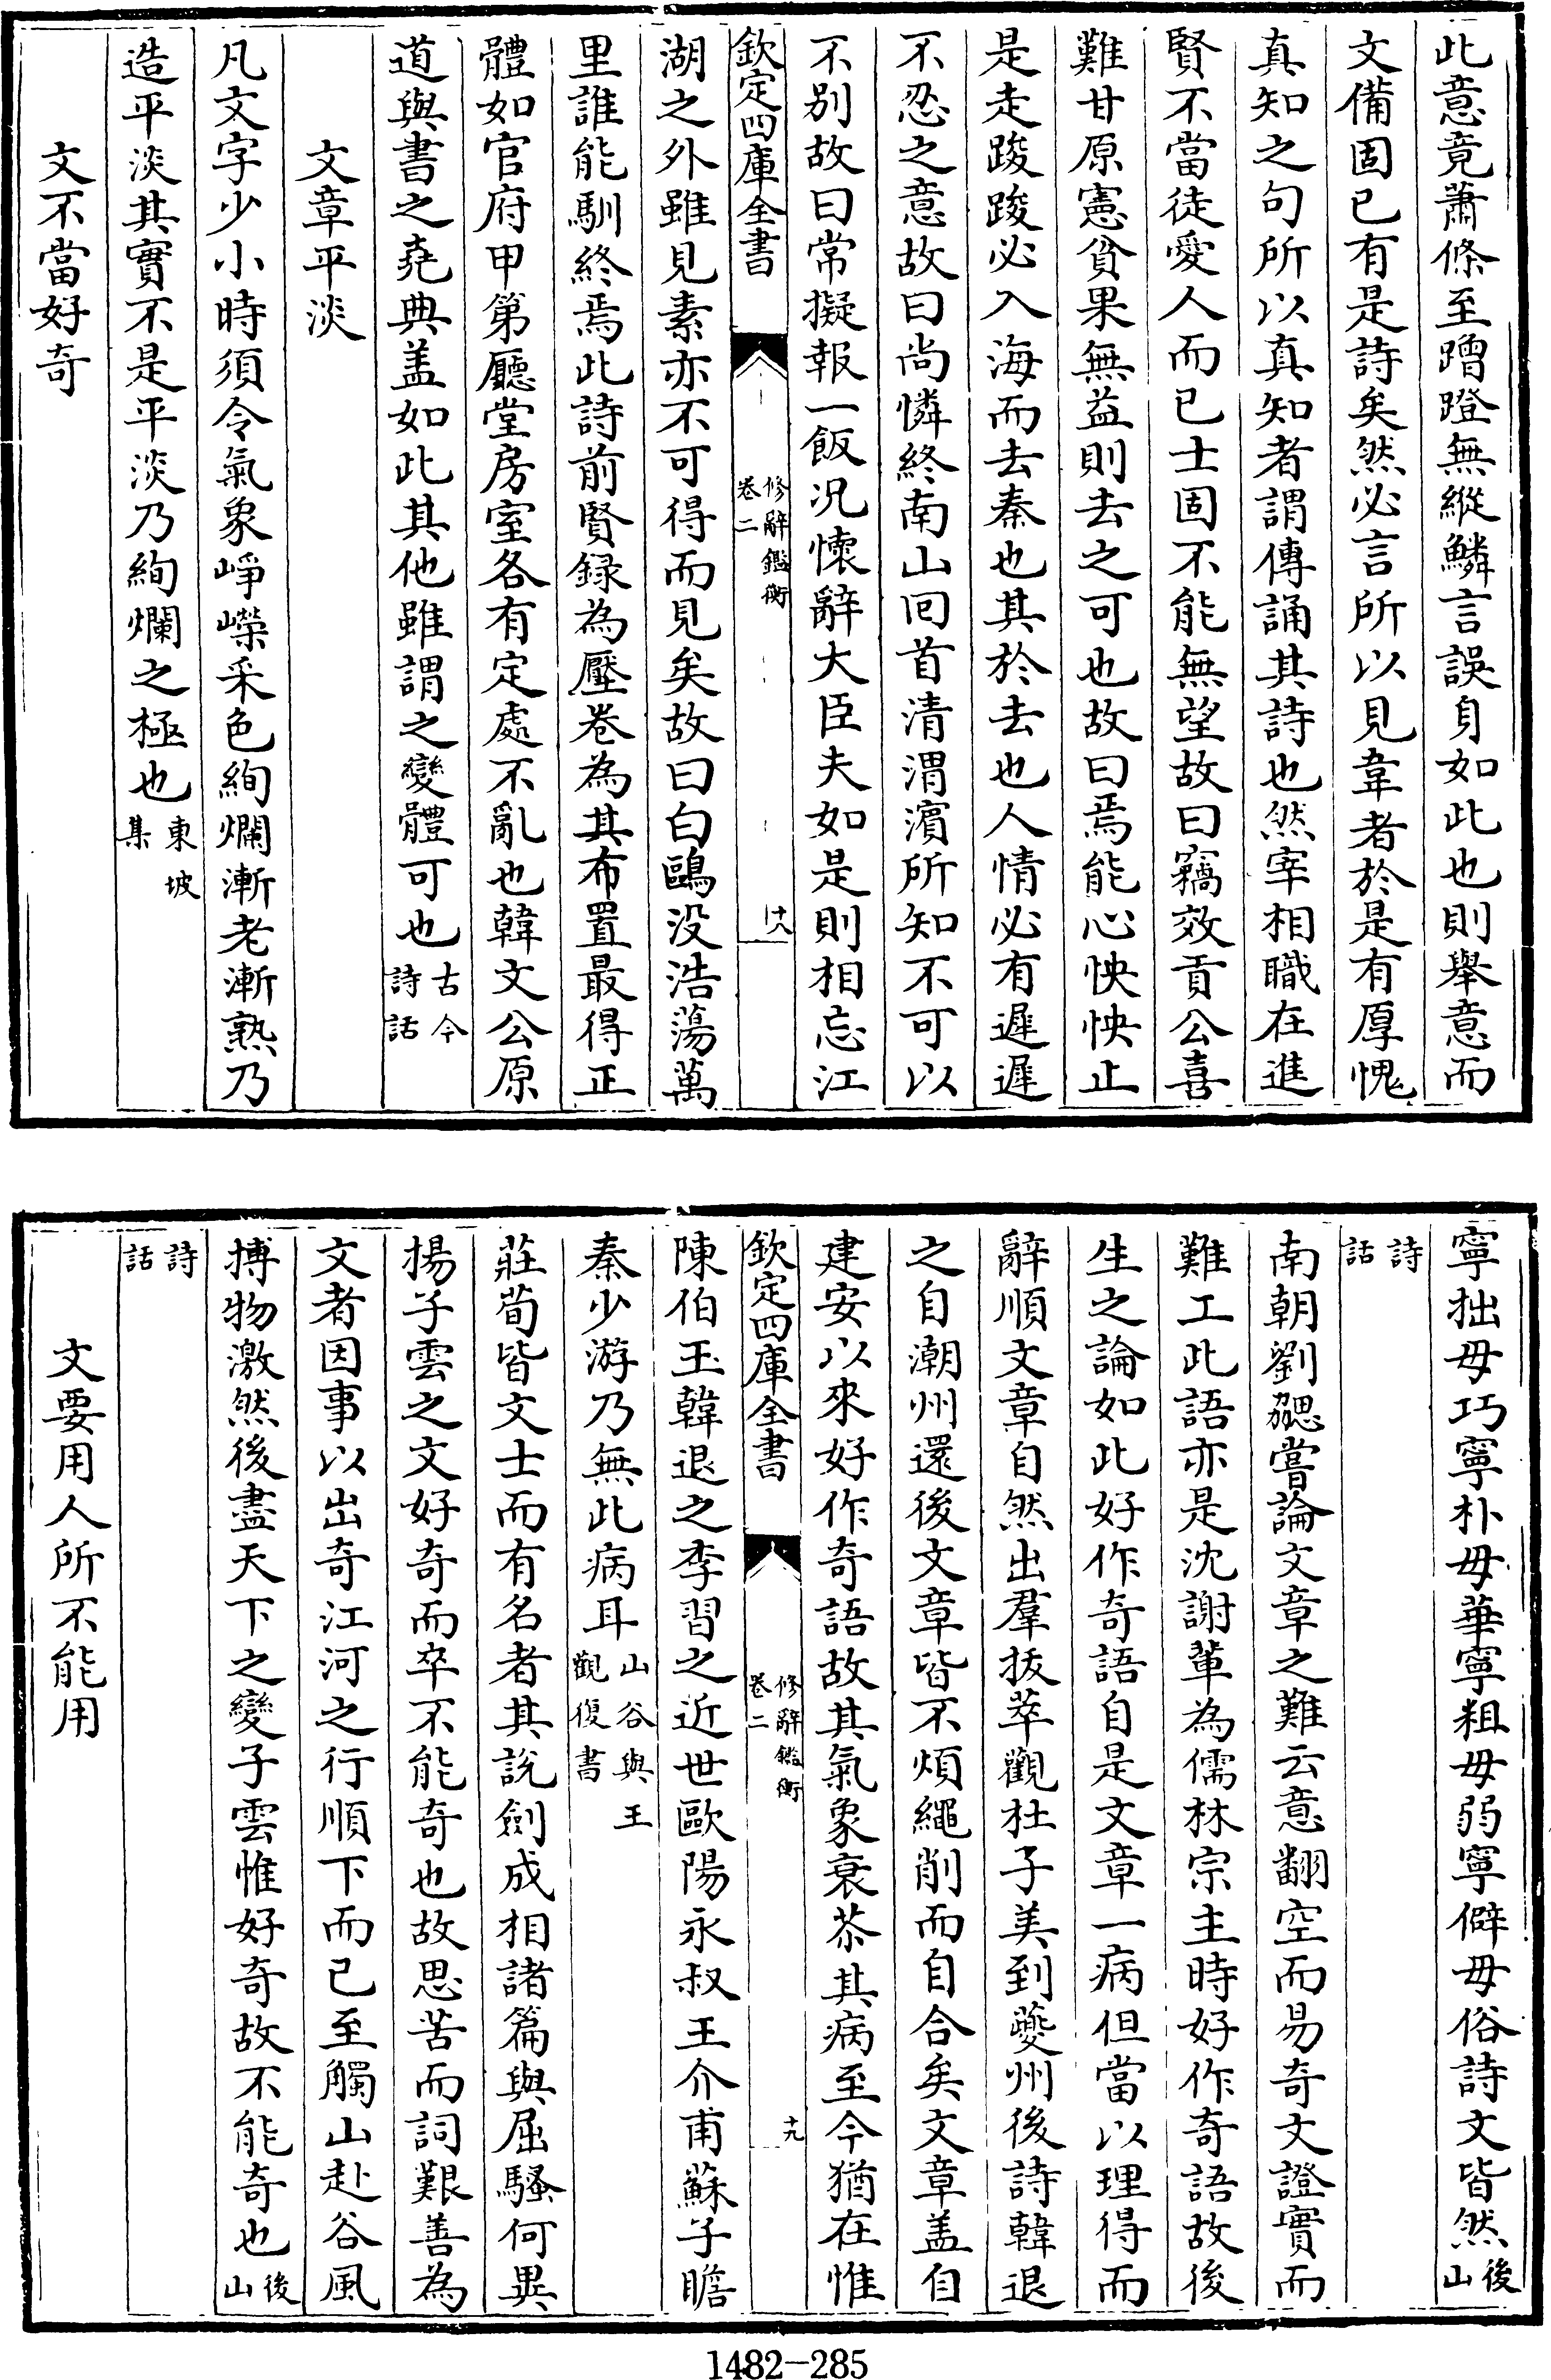 此意竟蕭條至蹭蹬無縱鱗言誤身如此也則舉意而
文備固已有是詩矣然必言所以見韋者於是有厚愧
真知之句所以真知者謂傳誦其詩也然宰相職在進
賢不當徒愛人而已士固不能無望故曰竊效貢公喜
難甘原憲貧果無益則去之可也故曰焉能心怏怏止
是走踆踆必入海而去秦也其於去也人情必有遲遲
不忍之意故曰尚憐終南山回首清渭濱所知不可以
不別故曰常擬報一飯况懷辭大臣夫如是則相忘江
欽定四庫全書
修辭鑑衡
卷二
十八
湖之外雖見素亦不可得而見矣故曰白鷗没浩蕩萬
里誰能馴終焉此詩前賢録為壓卷為其布置最得正
體如官府甲第廳堂房室各有定處不亂也韓文公原
道與書之堯典盖如此其他雖謂之變體可也古今詩話
文章平淡
凡文字少小時須令氣象崢嶸采色絢爛漸老漸熟乃
造平淡其實不是平淡乃絢爛之極也東坡集
文不當好奇
寧拙毋巧寧朴毋華寧粗毋弱寧僻毋俗詩文皆然後山
詩話
南朝劉勰嘗論文章之難云意翻空而易奇文證實而
難工此語亦是沈謝輩為儒林宗主時好作奇語故後
生之論如此好作奇語自是文章一病但當以理得而
辭順文章自然出羣拔萃觀杜子美到夔州後詩韓退
之自潮州還後文章皆不煩繩削而自合矣文章盖自
建安以來好作奇語故其氣象衰苶其病至今猶在惟
欽定四庫全書
修辭鑑衡
卷二
十九
陳伯玉韓退之李習之近世歐陽永叔王介甫蘇子瞻
秦少游乃無此病耳山谷與王觀復書
莊荀皆文士而有名者其說劍成相諸篇與屈騷何異
揚子雲之文好奇而卒不能奇也故思苦而詞艱善為
文者因事以出奇江河之行順下而已至觸山赴谷風
搏物激然後盡天下之變子雲惟好奇故不能奇也後山
詩話
文要用人所不能用
1482-285